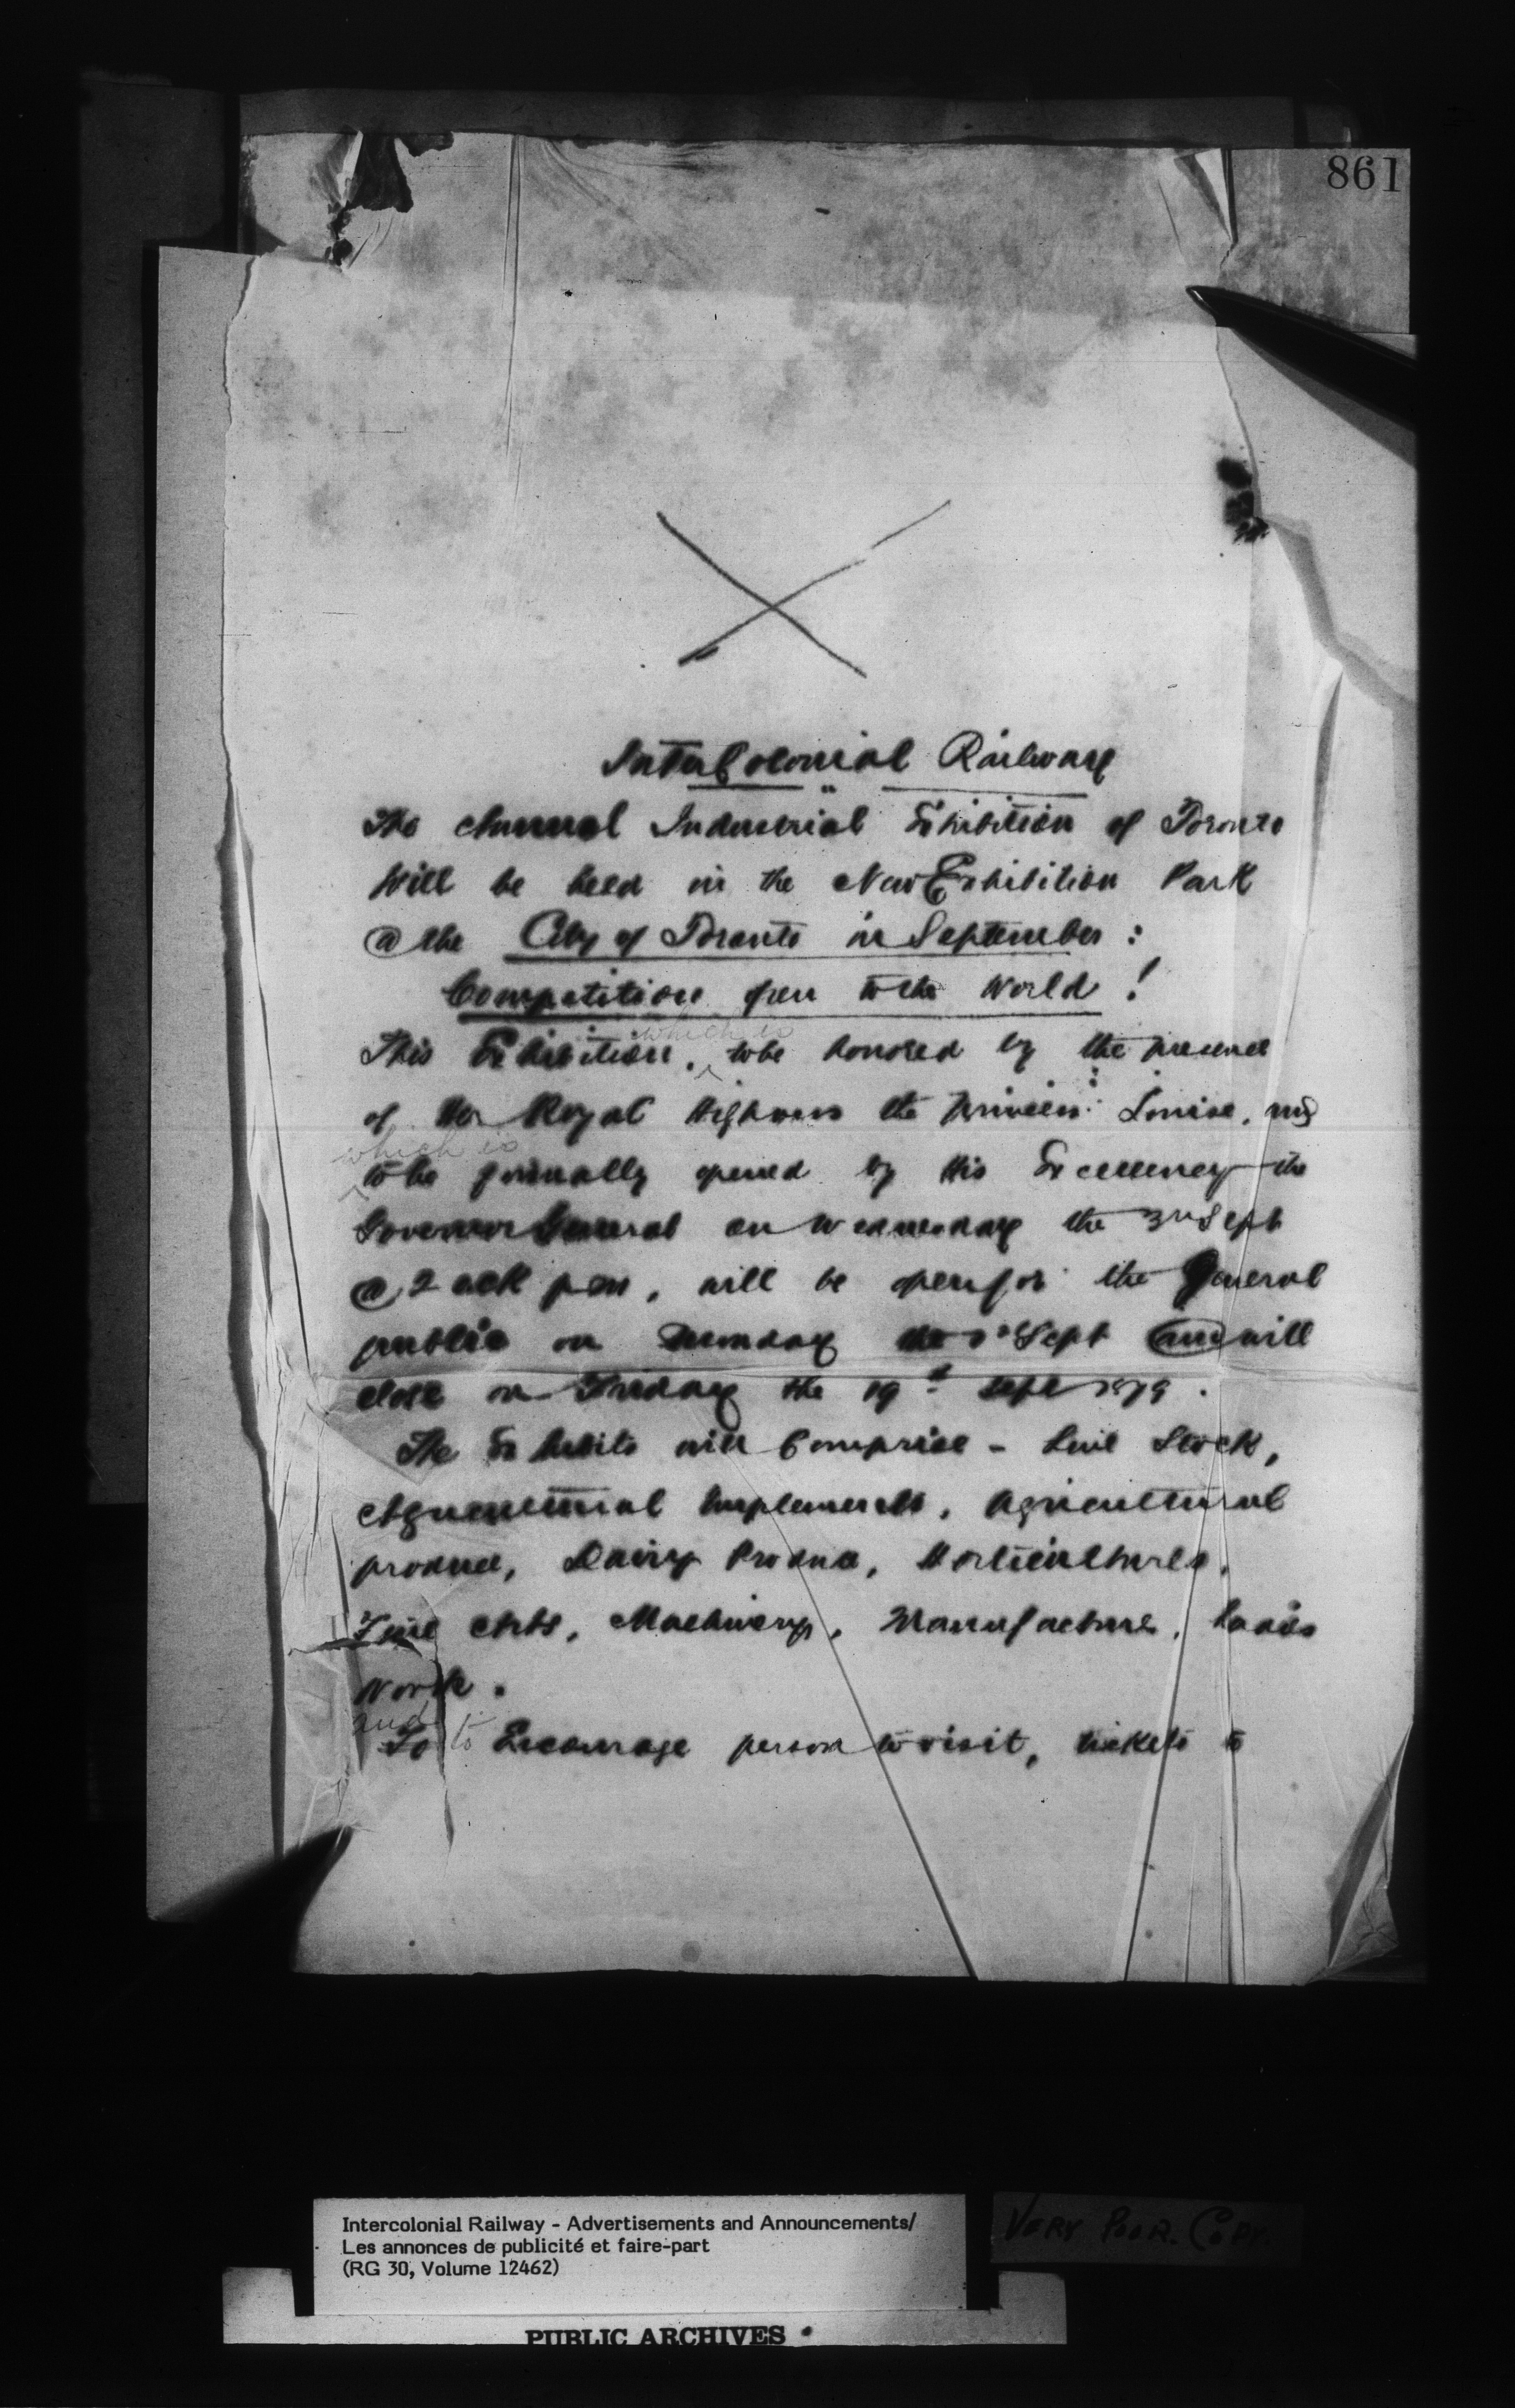 861
InterColonial Railway
The Annual Industrial Exhibition of Toronto
Will be held in the New Exhibition Park
@ the City of Toronto in September :
Competition open to the World !
which is
This Exhibition, to be honored by the presence
of Her Royal Highness the Princess Louise, and
which is
to be formally opened by His Excellency the
Governor General on Wednesday the 3rd Sept
@ 2 oclk pm, will be open for the General
public on the Sept and will
close on Friday the 19th Sept 1879.
The Exhibits will Comprise - Live Stock,
Agricultural Implements, Agricultural
produce, Dairy Produce, Horticultural,
Fine Arts, Machinery, Manufactures, Ladies
Work.
and
To to Encourage persons to visit, tickets to
Intercolonial Railway - Advertisements and Announcements/
Les annonces de publicité et faire-part
(RG 30, Volume 12462)
VERY POOR COPY
PUBLIC ARCHIVES